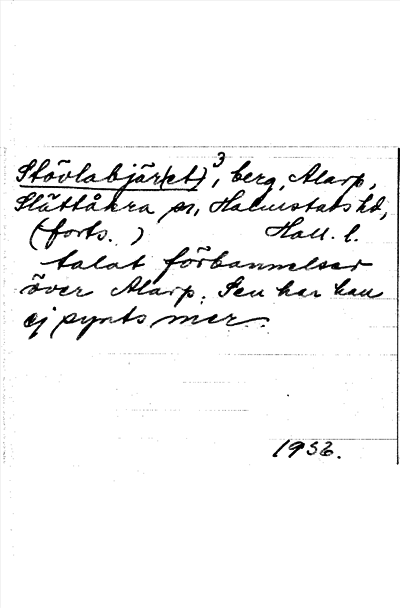 Stövlabjär(et)³, berg, Alarp,
Slättåkra sn, Halmstads hd,
(forts.) Hall. l.
talat förbannelser
över Alarp. Sen har han
ej synts mer.
1932.